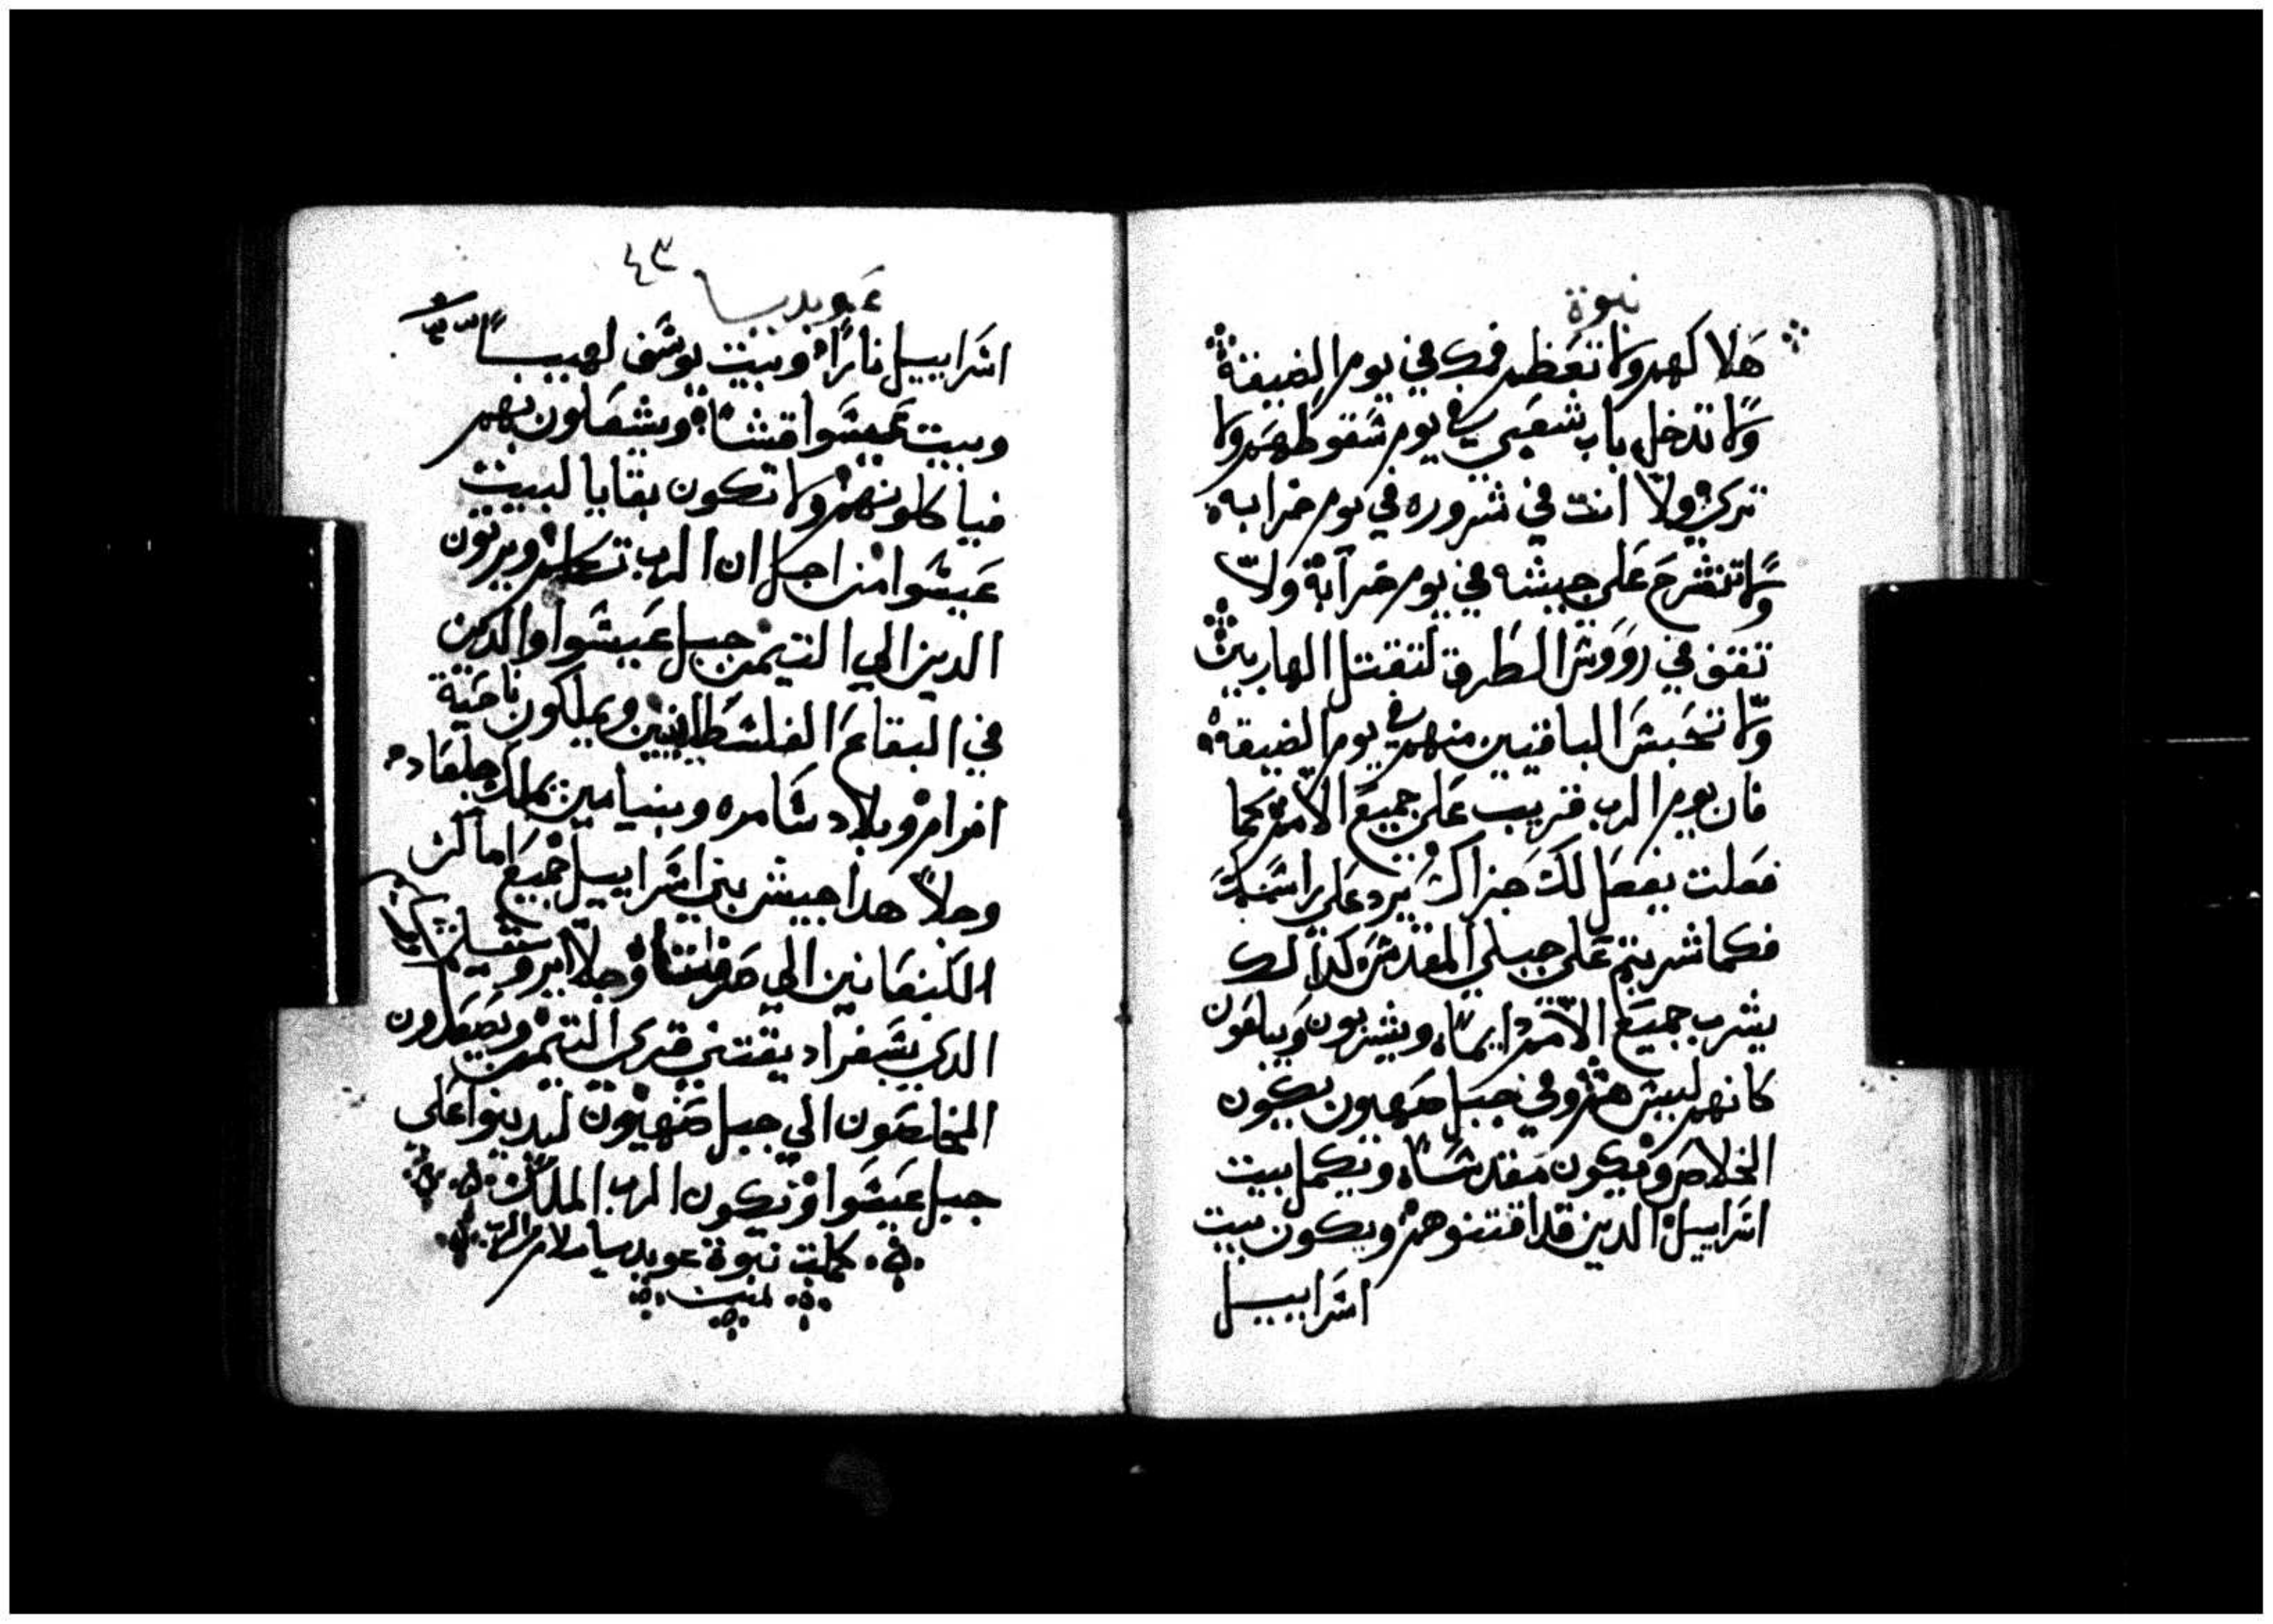 نبوة
هلاكهم ولا تعظم فمك في يوم الضيقة
ولا تدخل باب شعبي في يوم سقوطهم ولا
تري ولا انت في شروره في يوم خرابه
ولا تنشرح علي جيشه في يوم خرابة ولا
تقف في رووس الطرق لتقتل الهاربين
ولا تحبس الباقيين منهم في يوم الضيقة
فان يوم الرب قريب علي جميع الامم كما
فعلت يفعل لك جزاك يرد علي راسك
فكما شربتم علي جبلي المقدس كدالك
يشرب جميع الامم دايما ويشربون ويبلعون
كانهم ليس هم وفي جبل صهيون يكون
الخلاص ويكون مقدسا ويكمل بيت
اسراييل الدين قد اقتنوهم ويكون بيت
اسراييل
عوبديا ٤٣
اسراييل نارا وبيت يوسف لهيبا
وبيت عيسوا قشا ويشعلون بهم
فياكلونهم ولا تكون بقايا لبيت
عيسوا من اجل ان الرب تكلم ويرتون
الدين الي التيمن جبل عيسوا والدين
في البقاع الفلسطانيين ويملكون ناحية
افرام وبلاد سامره وبنيامين يملك جلعاد
وجلا هدا جيش بني اسراييل جميع اماكن
الكنعانين الي صرفتا وجلا ايروشليم
الدي بسفراد يقتني قري التيمن ويصعدون
المخلصون الي جبل صهيون ليدينوا علي
جبل عيسوا ويكون الرب الملك
كملت نبوة عوبديا